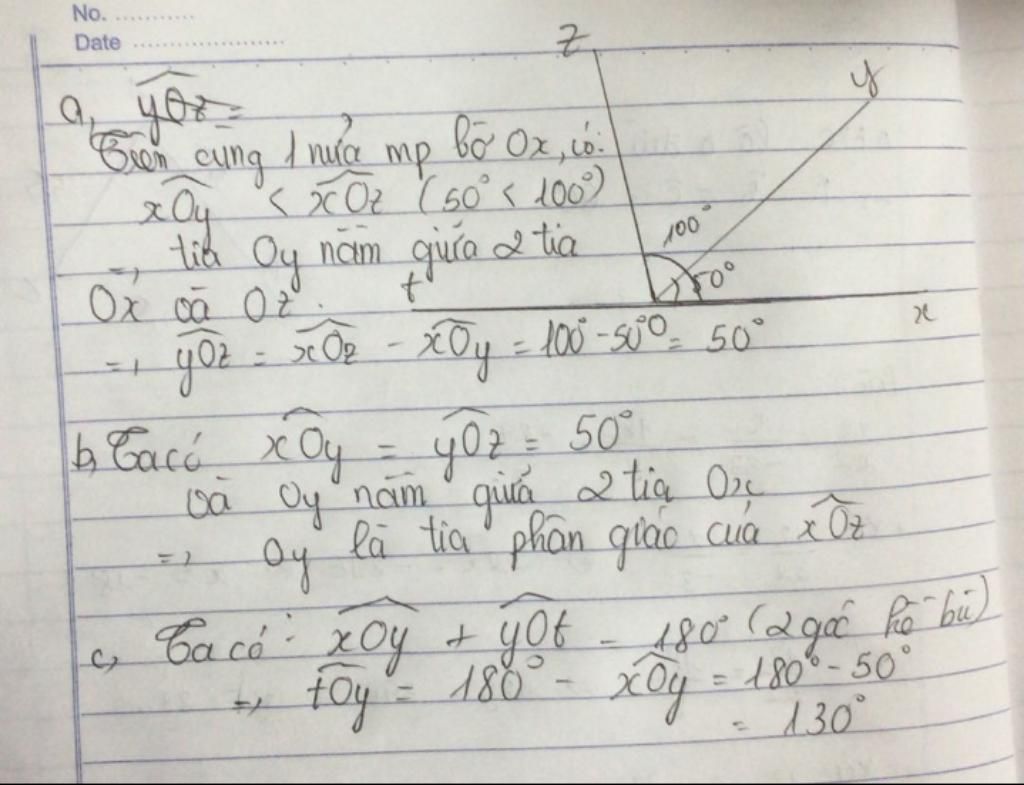 No. ............
Date ......................
z
y
a, yOz =
Trên cùng 1 nửa mp bờ Ox, có:
xOy < xOz (50° < 100°)
100°
=, tia Oy nằm giữa 2 tia
50°
Ox và Oz.
t
x
=, yOz = xOz - xOy = 100° - 50° = 50°
b, Ta có xOy = yOz = 50°
và Oy nằm giữa 2 tia Ox
=, Oy là tia phân giác của xOz
c, Ta có: xOy + yOt = 180° (2 góc kề bù)
=, tOy = 180° - xOy = 180° - 50°
= 130°